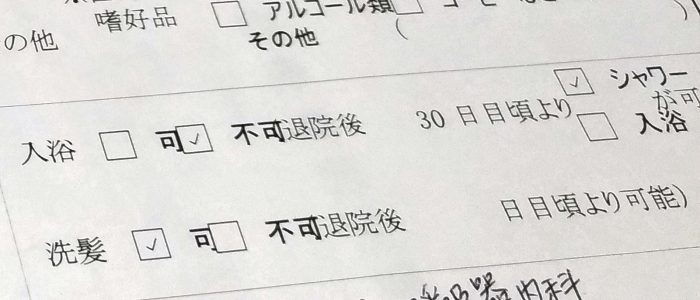 嗜好品 □ アルコール類 □
の他 その他 (
☑ シャワー
入浴 □ 可 ☑ 不可 退院後 30 日目頃より が可
□ 入浴
洗髪 ☑ 可 □ 不可 退院後 日目頃より可能)
器内科